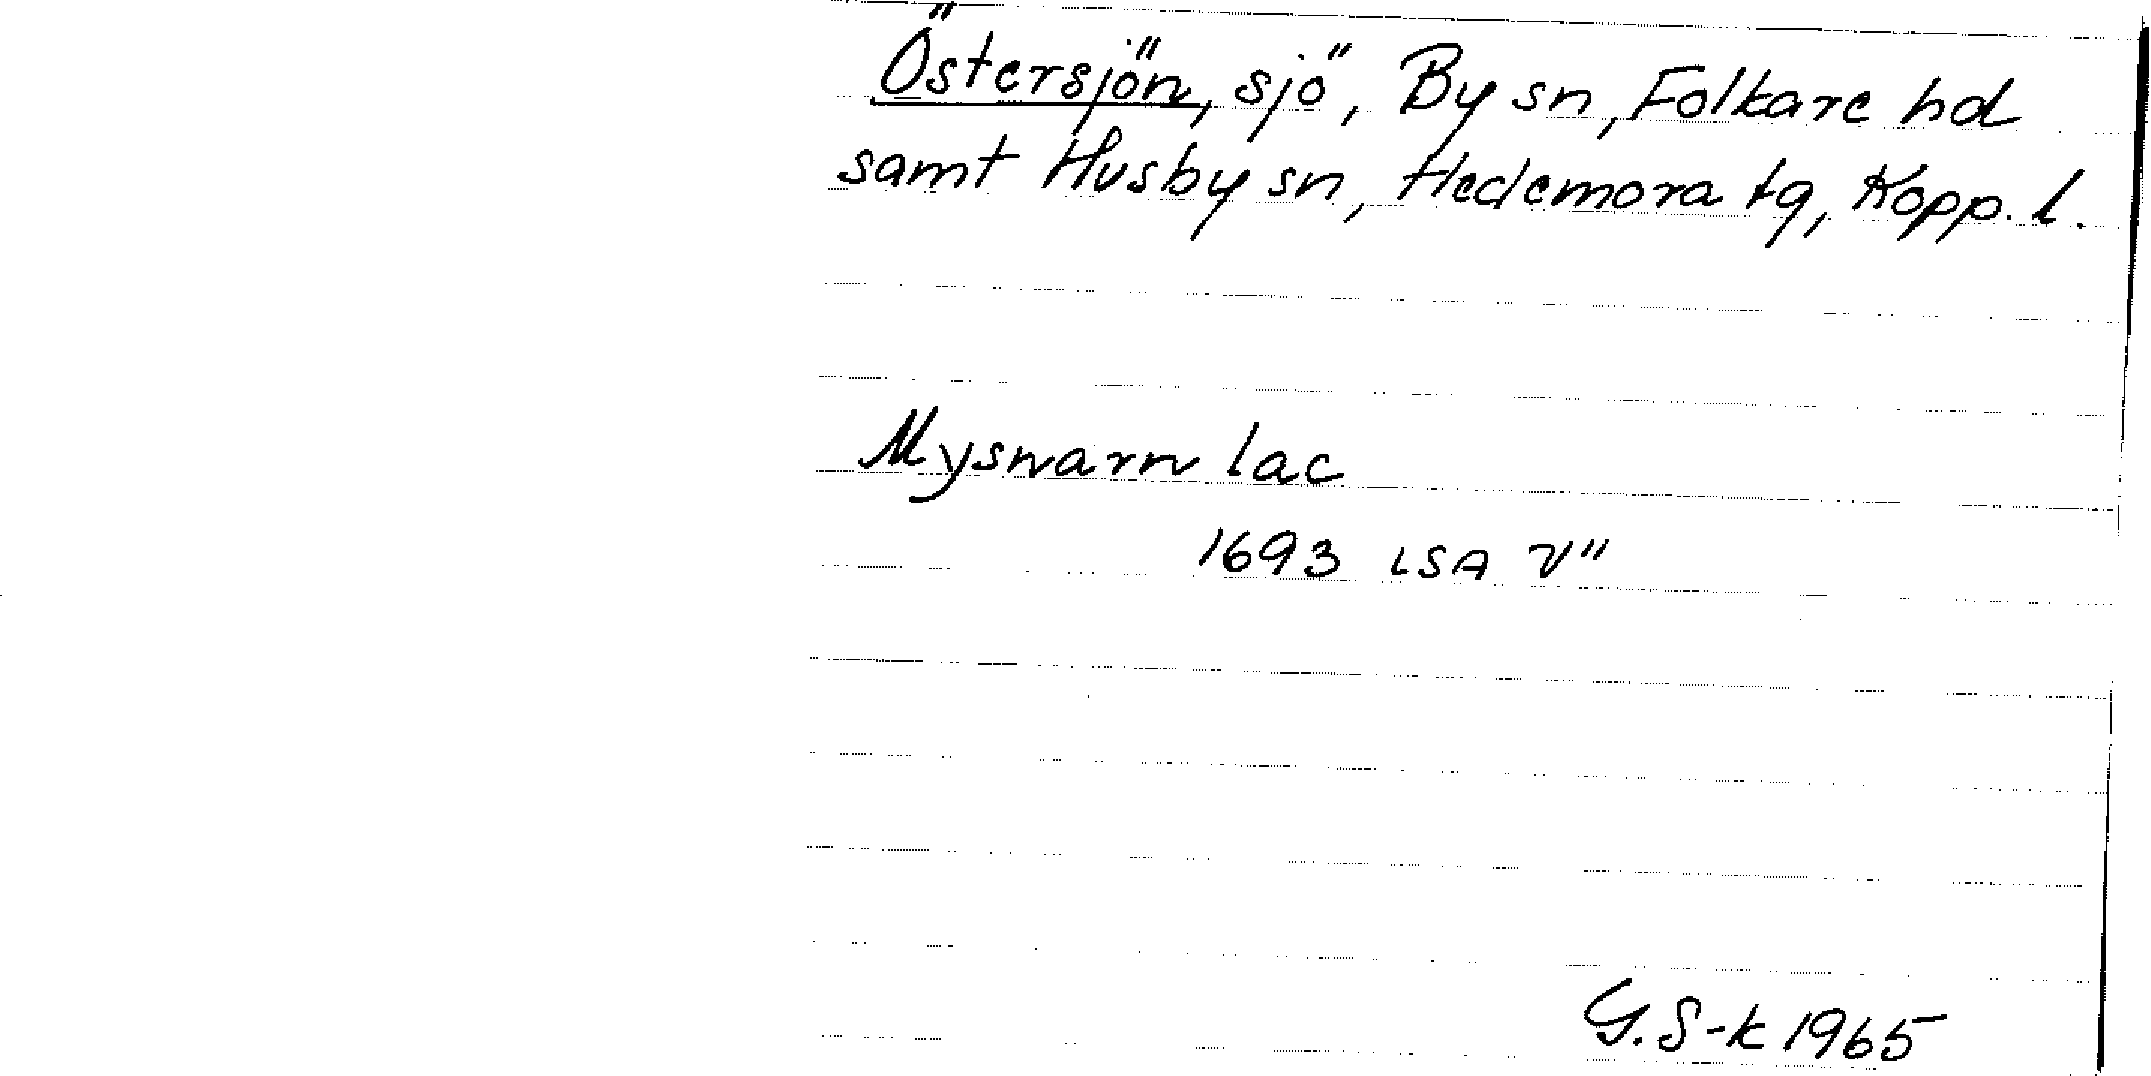 Östersjön, sjö, By sn, Folkare hd
samt Husby sn, Hedemora tg, Kopp. l.
Myswarn lac
1693 LSA V"
G. S-k 1965